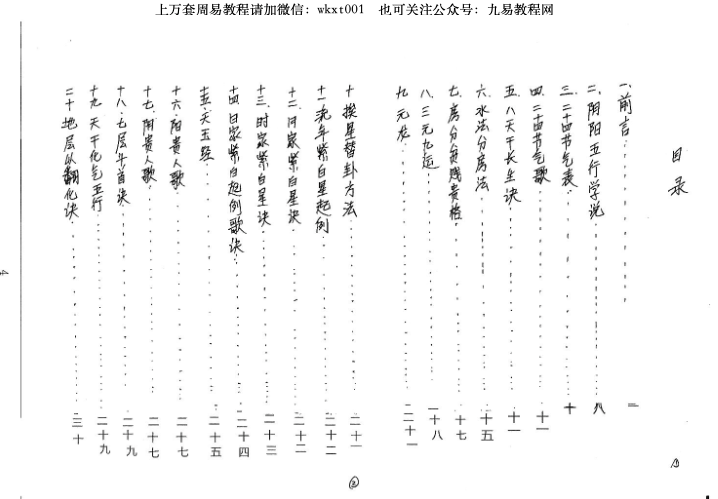 上万套周易教程请加微信：wkxt001　也可关注公众号：九易教程网
目录
一、前言……一
二、阴阳五行学说……八
三、二十四节气表……十
四、二十四节气歌……十一
五、八天干长生诀……十一
六、水法分房法……十五
七、房分贫贱贵格……十七
八、三元九运……一十八
九、元龙……二十一
十、挨星替卦方法……二十一
十一、流年紫白星起例……二十二
十二、月家紫白星诀……二十二
十三、时家紫白星诀……二十三
十四、日家紫白起例歌诀……二十四
十五、天玉经……二十五
十六、阳贵人歌……二十七
十七、阴贵人歌……二十七
十八、七层斗首诀……二十九
十九、天干化气五行……二十九
二十、地层纵翻化诀……三十
②
4